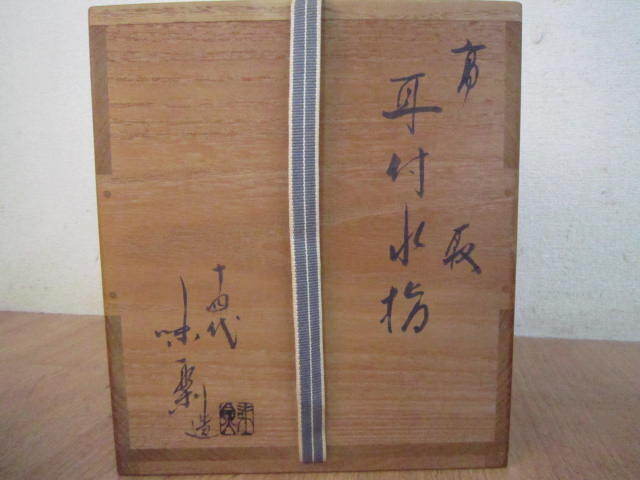 高取
耳付水指
十四代
味楽造